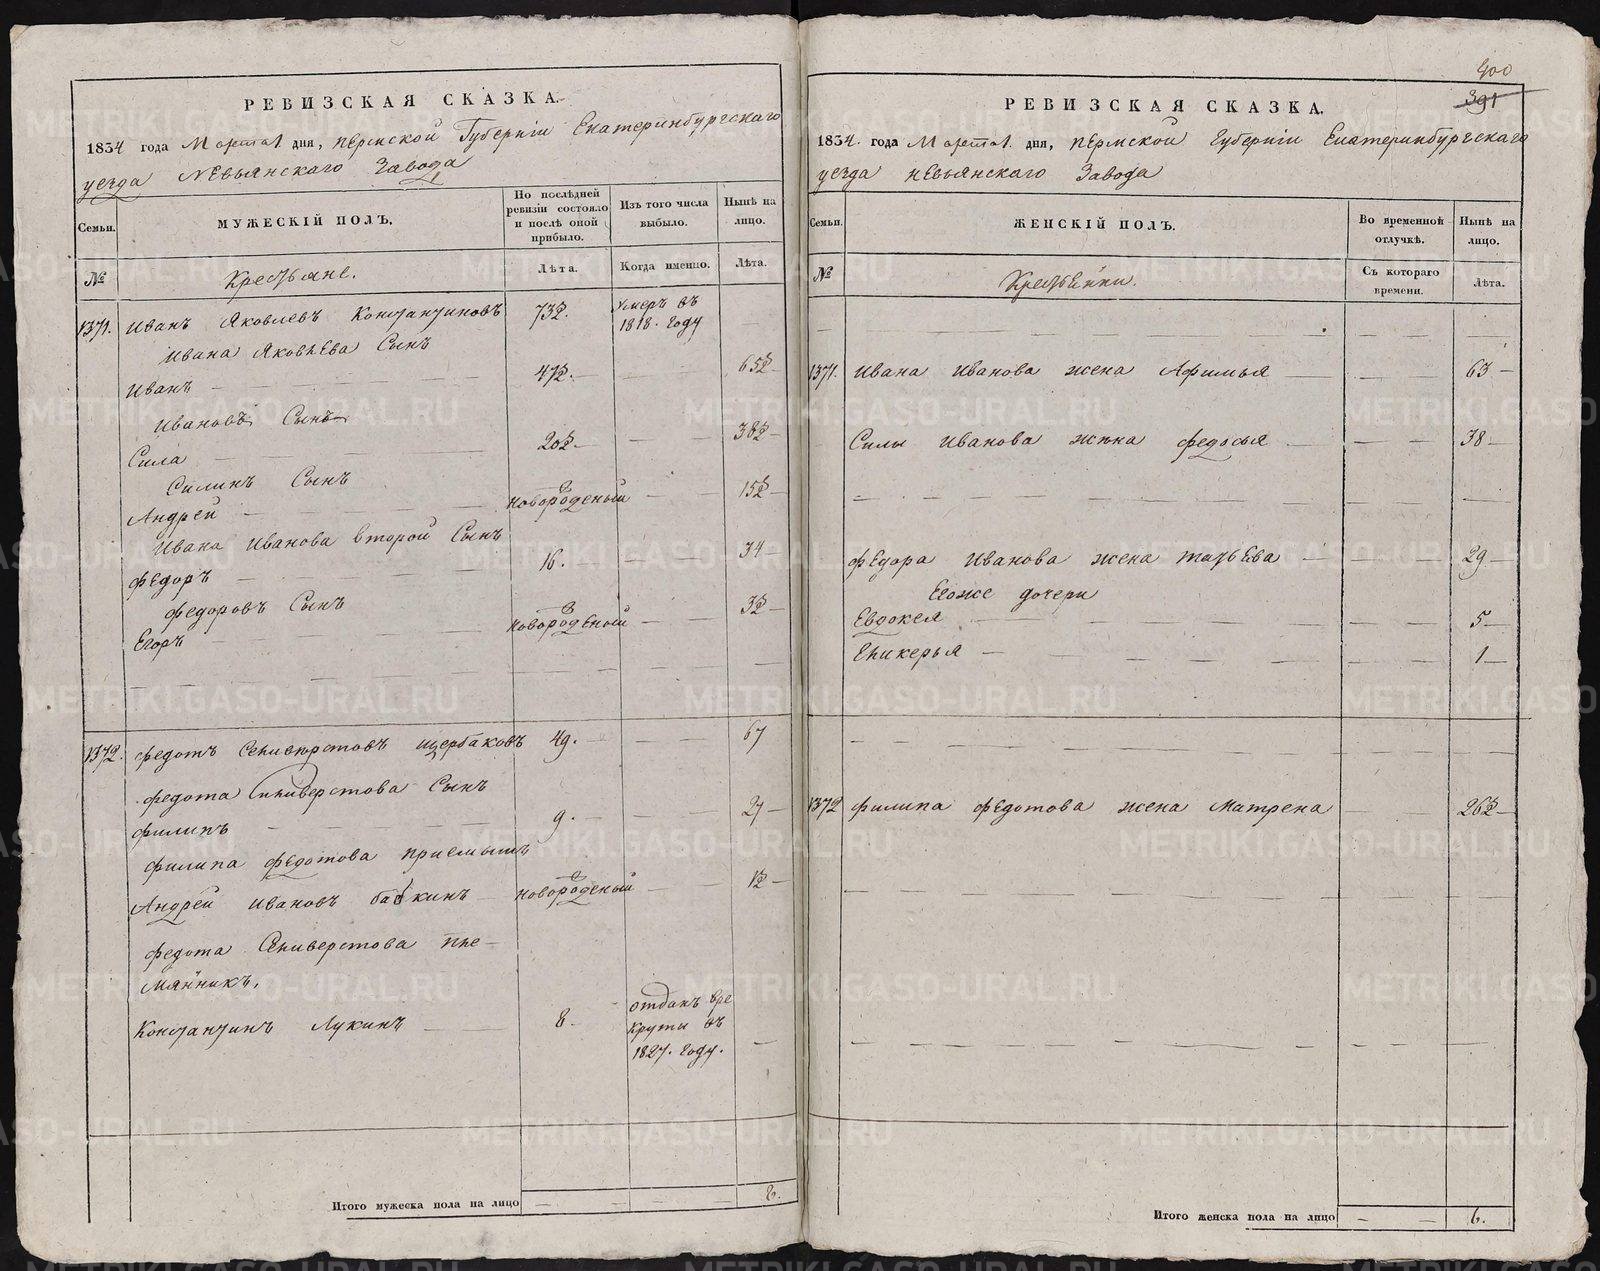 РЕВИЗСКАЯ СКАЗКА.
1834 года Марта 1 дня, пермской Губерніи Екатеринбургскаго
уезда Невьянскаго Завода
Семьи.
МУЖЕСКІЙ ПОЛЪ.
По послѣдней ревизіи состояло и послѣ оной прибыло.
Изъ того числа выбыло.
Нынѣ на лицо.
№
Крестьяне.
Лѣта.
Когда именно.
Лѣта.
1371. Иванъ Яковлевъ Константиновъ 73½. Умеръ въ
1818. году
Ивана Яковлева Сынъ
Иванъ 47½. 65½
Ивановъ Сынъ
Сила 20½. 38½
Силинъ Сынъ
Андрей новороденый 15½
Ивана Иванова второй Сынъ
Федоръ 16. 34
федоровъ Сынъ
Егоръ новороденый 3½
1372. федотъ Селиверстовъ Щербаковъ 49. 67
федота Силиверстова Сынъ
филипъ 9. 27
филипа федотова приемышъ
Андрей Ивановъ бабкинъ новороденый 1½
федота Селиверстова пле-
мянникъ.
Константинъ Лукинъ 8. отданъ вре
круты въ
1827. году.
Итого мужеска пола на лицо 8.
400
391
РЕВИЗСКАЯ СКАЗКА.
1834. года Марта 1. дня, пермской губерніи Екатеринбургскаго
уезда невьянскаго Завода
Семьи.
ЖЕНСКІЙ ПОЛЪ.
Во временной отлучкѣ.
Нынѣ на лицо.
№
Крестьянки.
Съ котораго времени.
Лѣта.
1371. Ивана Иванова жена Афимья 63
Силы Иванова жена федосья 38
федора Иванова жена татьева 29
Егоже дочери
Евдокея 5
Еликерья 1
1372 филипа федотова жена Матрена 26½
Итого женска пола на лицо 6.
METRIKI.GASO-URAL.RU